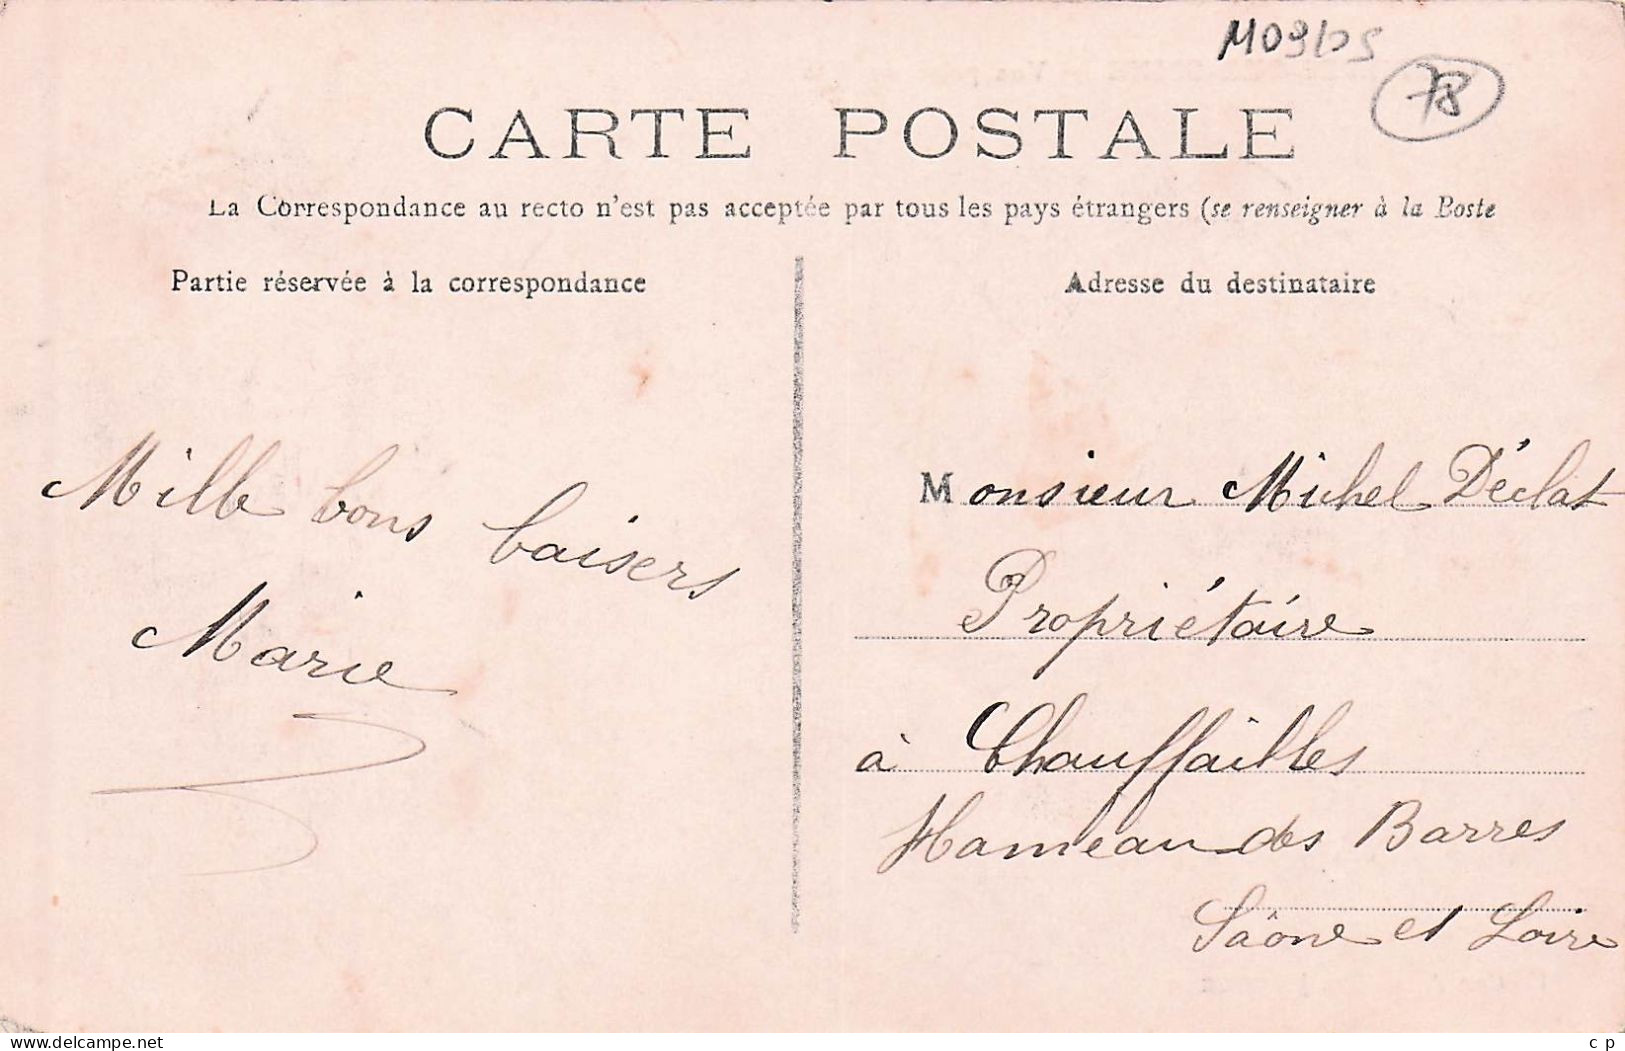 M09/05
78
CARTE POSTALE
La Correspondance au recto n'est pas acceptée par tous les pays étrangers (se renseigner à la Poste
Partie réservée à la correspondance
Adresse du destinataire
Mille bons baisers
Marie
Monsieur Michel Déclat
Propriétaire
à Chauffailles
Hameau des Barres
Saône et Loire
www.delcampe.net
c p